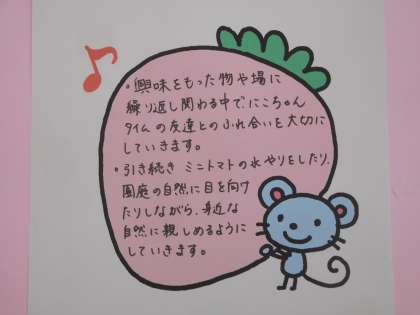 ・興味をもった物や場に
繰り返し関わる中で、にこちゃん
タイムの友達とのふれ合いを大切に
していきます。
・引き続き ミニトマトの水やりをしたり、
園庭の自然に目を向け
たりしながら、身近な
自然に親しめるように
していきます。